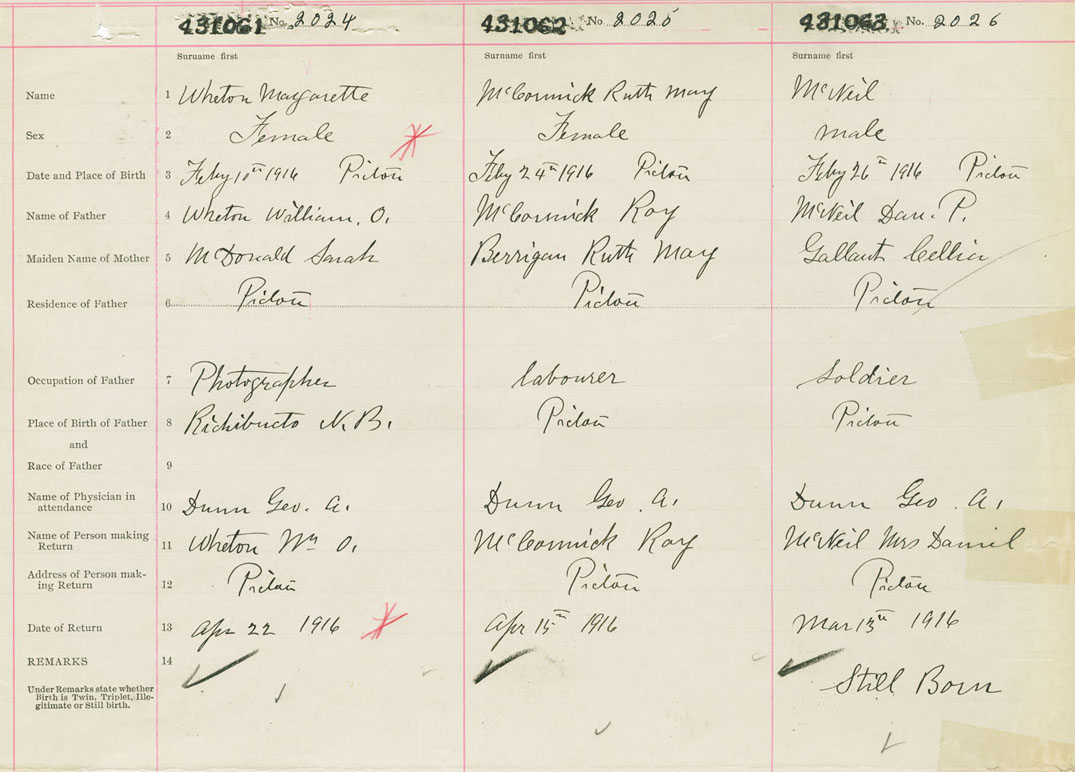 431061 No. 2024 431062 No 2025 431063 No. 2026
Surname first Surname first Surname first
Name 1 Wheton Margarette McCormick Ruth May McNeil
Sex 2 Female Female male
Date and Place of Birth 3 Feby 10th 1916 Pictou Feby 24th 1916 Pictou Feby 26th 1916 Pictou
Name of Father 4 Wheton William. O. McCormick Roy McNeil Dan. P.
Maiden Name of Mother 5 McDonald Sarah Berrigan Ruth May Gallant
Residence of Father 6 Pictou Pictou Pictou
Occupation of Father 7 Photographer labourer Soldier
Place of Birth of Father 8 Richibucto N. B. Pictou Pictou
and
Race of Father 9
Name of Physician in
attendance 10 Dunn Geo. A. Dunn Geo. A. Dunn Geo. A.
Name of Person making
Return 11 Wheton Wm O. McCormick Roy McNeil Mrs Daniel
Address of Person mak-
ing Return 12 Pictou Pictou Pictou
Date of Return 13 Apr 22 1916 Apr 15th 1916 Mar 13th 1916
REMARKS 14
Under Remarks state whether
Birth is Twin, Triplet, Ille-
gitimate or Still birth.
Still Born